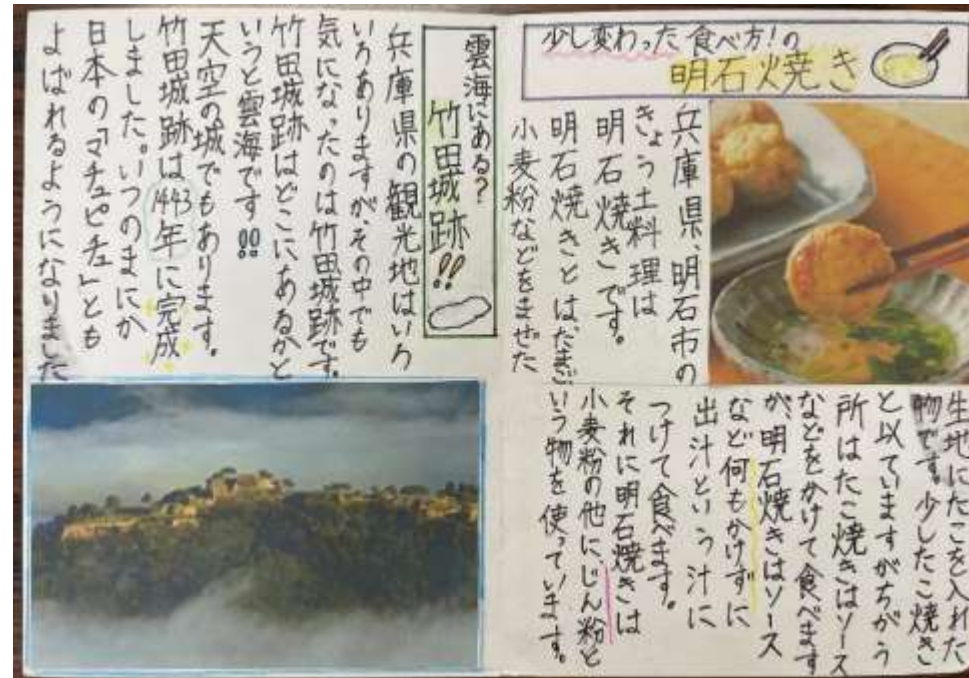 少し変わった食べ方!の
明石焼き
兵庫県、明石市の
きょう土料理は
明石焼きです。
明石焼きとは、たまご、
小麦粉などをまぜた
生地にたこを入れた
物です。少したこ焼き
と以ていますがちがう
所はたこ焼きはソース
などをかけて食べます
が、明石焼きはソース
など何もかけずに
出汁という汁に
つけて食べます。
それに明石焼きは
小麦粉の他に、じん粉と
いう物を使っています。
雲海にある?
竹田城跡!!
兵庫県の観光地はいろ
いろありますが、その中でも
気になったのは竹田城跡です。
竹田城跡はどこにあるかと
いうと雲海です!!
天空の城でもあります。
竹田城跡は1443年に完成
しました。いつのまにか
日本の「マチュピチュ」とも
よばれるようになりました